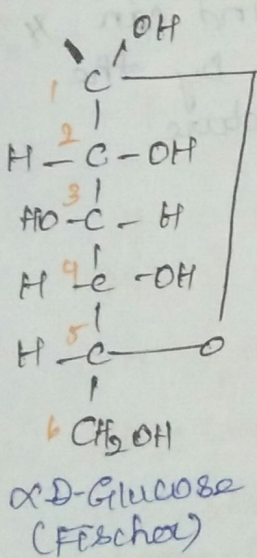 OH
1 C
2
H - C - OH
3
HO - C - H
4
H - C - OH
5
H - C - O
6 CH2OH
α D-Glucose
(Fischer)